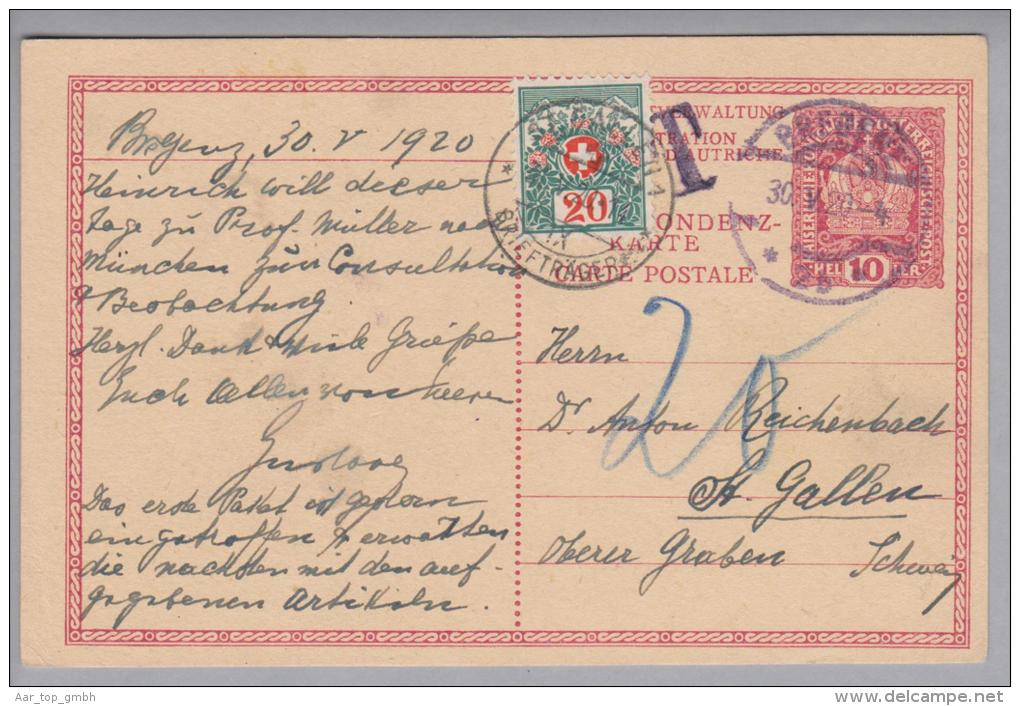 Bregenz, 30. V 1920
Heinrich will dieser
Tage zu Prof. Müller nach
München zur Consultation
& Beobachtung
Herzl. Dank & viele Grüße
Euch Allen von
Gustave
Das erste Paket ist gestern
eingetroffen & erwarten
die nächsten mit den auf-
gegebenen Artikeln.
SVERWALTUNG
TRATION
D'AUTRICHE
T
ONDENZ-
KARTE
CARTE POSTALE
20
ST. GALLEN 1
BRIEFTRÄGER
BREGENZ
30. V. 20 - 4
KAISERLICHE KÖNIGLICHE ÖSTERREICHISCHE POST
HELLER 10 HELLER
20
Herrn
Dr. Anton Reichenbach
St. Gallen
Oberer Graben Schweiz
Aar_top_gmbh
delcampe.net